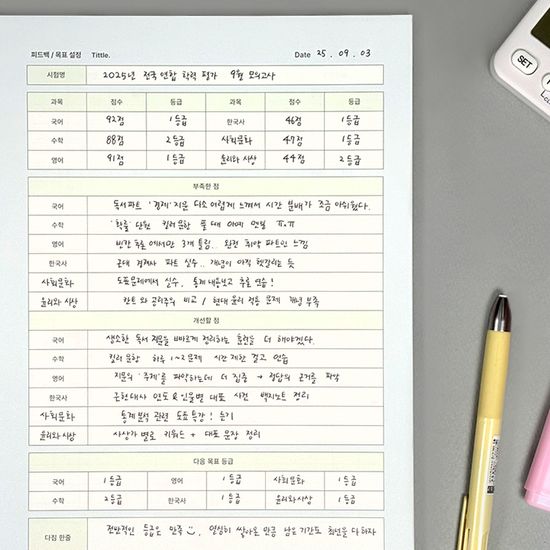 피드백 / 목표 설정 Tittle. Date 25 . 09 . 03
시험명 2025년 전국 연합 학력 평가 9월 모의고사
과목 점수 등급 과목 점수 등급
국어 92점 1등급 한국사 46점 1등급
수학 88점 2등급 사회문화 47점 1등급
영어 91점 1등급 윤리와 사상 44점 2등급
부족한 점
국어 독서파트 '경제' 지문 다소 어렵게 느껴서 시간 분배가 조금 아쉬웠다.
수학 '확률' 단원 킬러문항 풀 때 아직 안됨 ㅠ.ㅠ
영어 빈칸 추론에서만 3개 틀림.. 완전 취약 파트인 느낌
한국사 근대 경제사 파트 실수.. 개념이 아직 헷갈리는 듯
사회문화 도표문제에서 실수, 통계 내용보고 추론 연습!
윤리와 사상 칸트와 공리주의 비교 / 현대 윤리 적용 문제 개념 부족
개선할 점
국어 생소한 독서 지문을 빠르게 정리하는 훈련을 더 해야겠다.
수학 킬러 문항 하루 1~2문제 시간 제한 걸고 연습
영어 지문의 '주제'를 파악하는데 더 집중 → 정답의 근거를 파악
한국사 근현대사 연도 & 인물별 대표 사건 백지노트 정리
사회문화 통계 분석 관련 도표 특강! 듣기
윤리와 사상 사상가 별로 키워드 + 대표 문장 정리
다음 목표 등급
국어 1등급 영어 1등급 사회문화 1등급
수학 2등급 한국사 1등급 윤리와사상 1등급
다짐 한줄 전반적인 등급은 만족 열심히 쌓아온 만큼 남은 기간도 최선을 다하자
SET